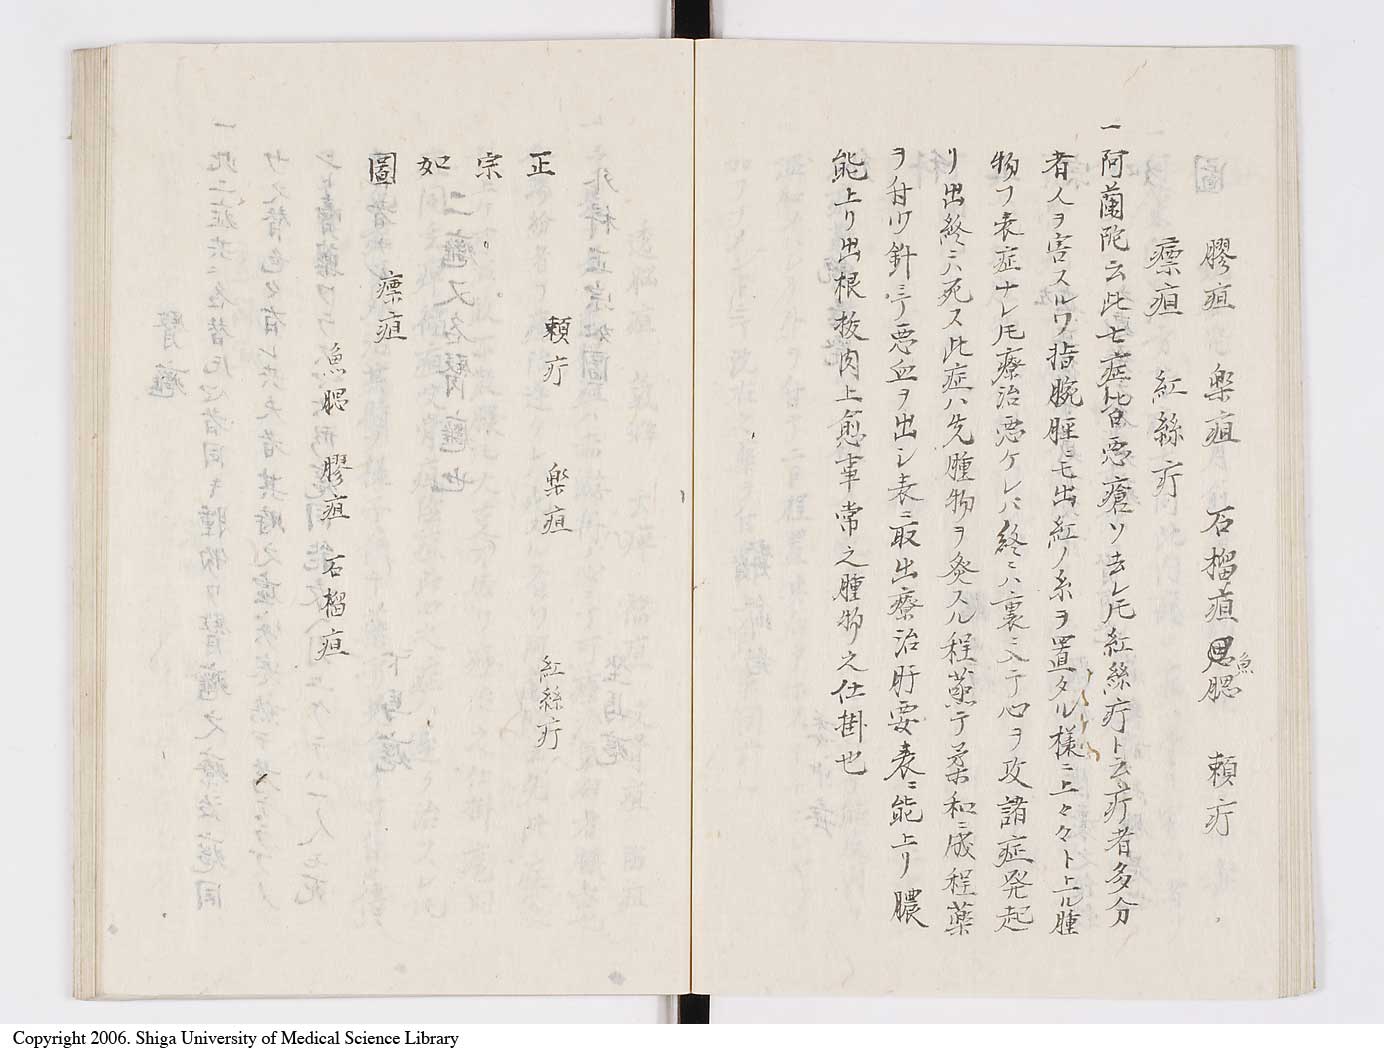 膠疽 楽疽 石榴疽 魚腮 頼疔
瘭疽 紅絲疔
一 阿蘭陀云此七症皆悪瘡ソ去レ𪜈紅絲疔ト云疔者多分
者人ヲ害スルワ指腕脛ニモ出紅ノ糸ヲ置タル様ニ上々々ト上ル腫
物フ表症ナレ𪜈療治悪ケレハ終ニハ裏ニ入テ心ヲ攻諸症発起
リ出終ニハ死ス此症ハ先腫物ヲ灸スル程蒸テ柔和ニ成程薬
ヲ付ツ針ニテ悪血ヲ出シ表ニ取出療治肝要表ニ能上リ膿
能上リ出根抜肉上愈事常之腫物之仕掛也
正宗如圖
頼疔 楽疽 紅絲疔
瘭疽
魚腮 膠疽 石榴疽
Copyright 2006. Shiga University of Medical Science Library